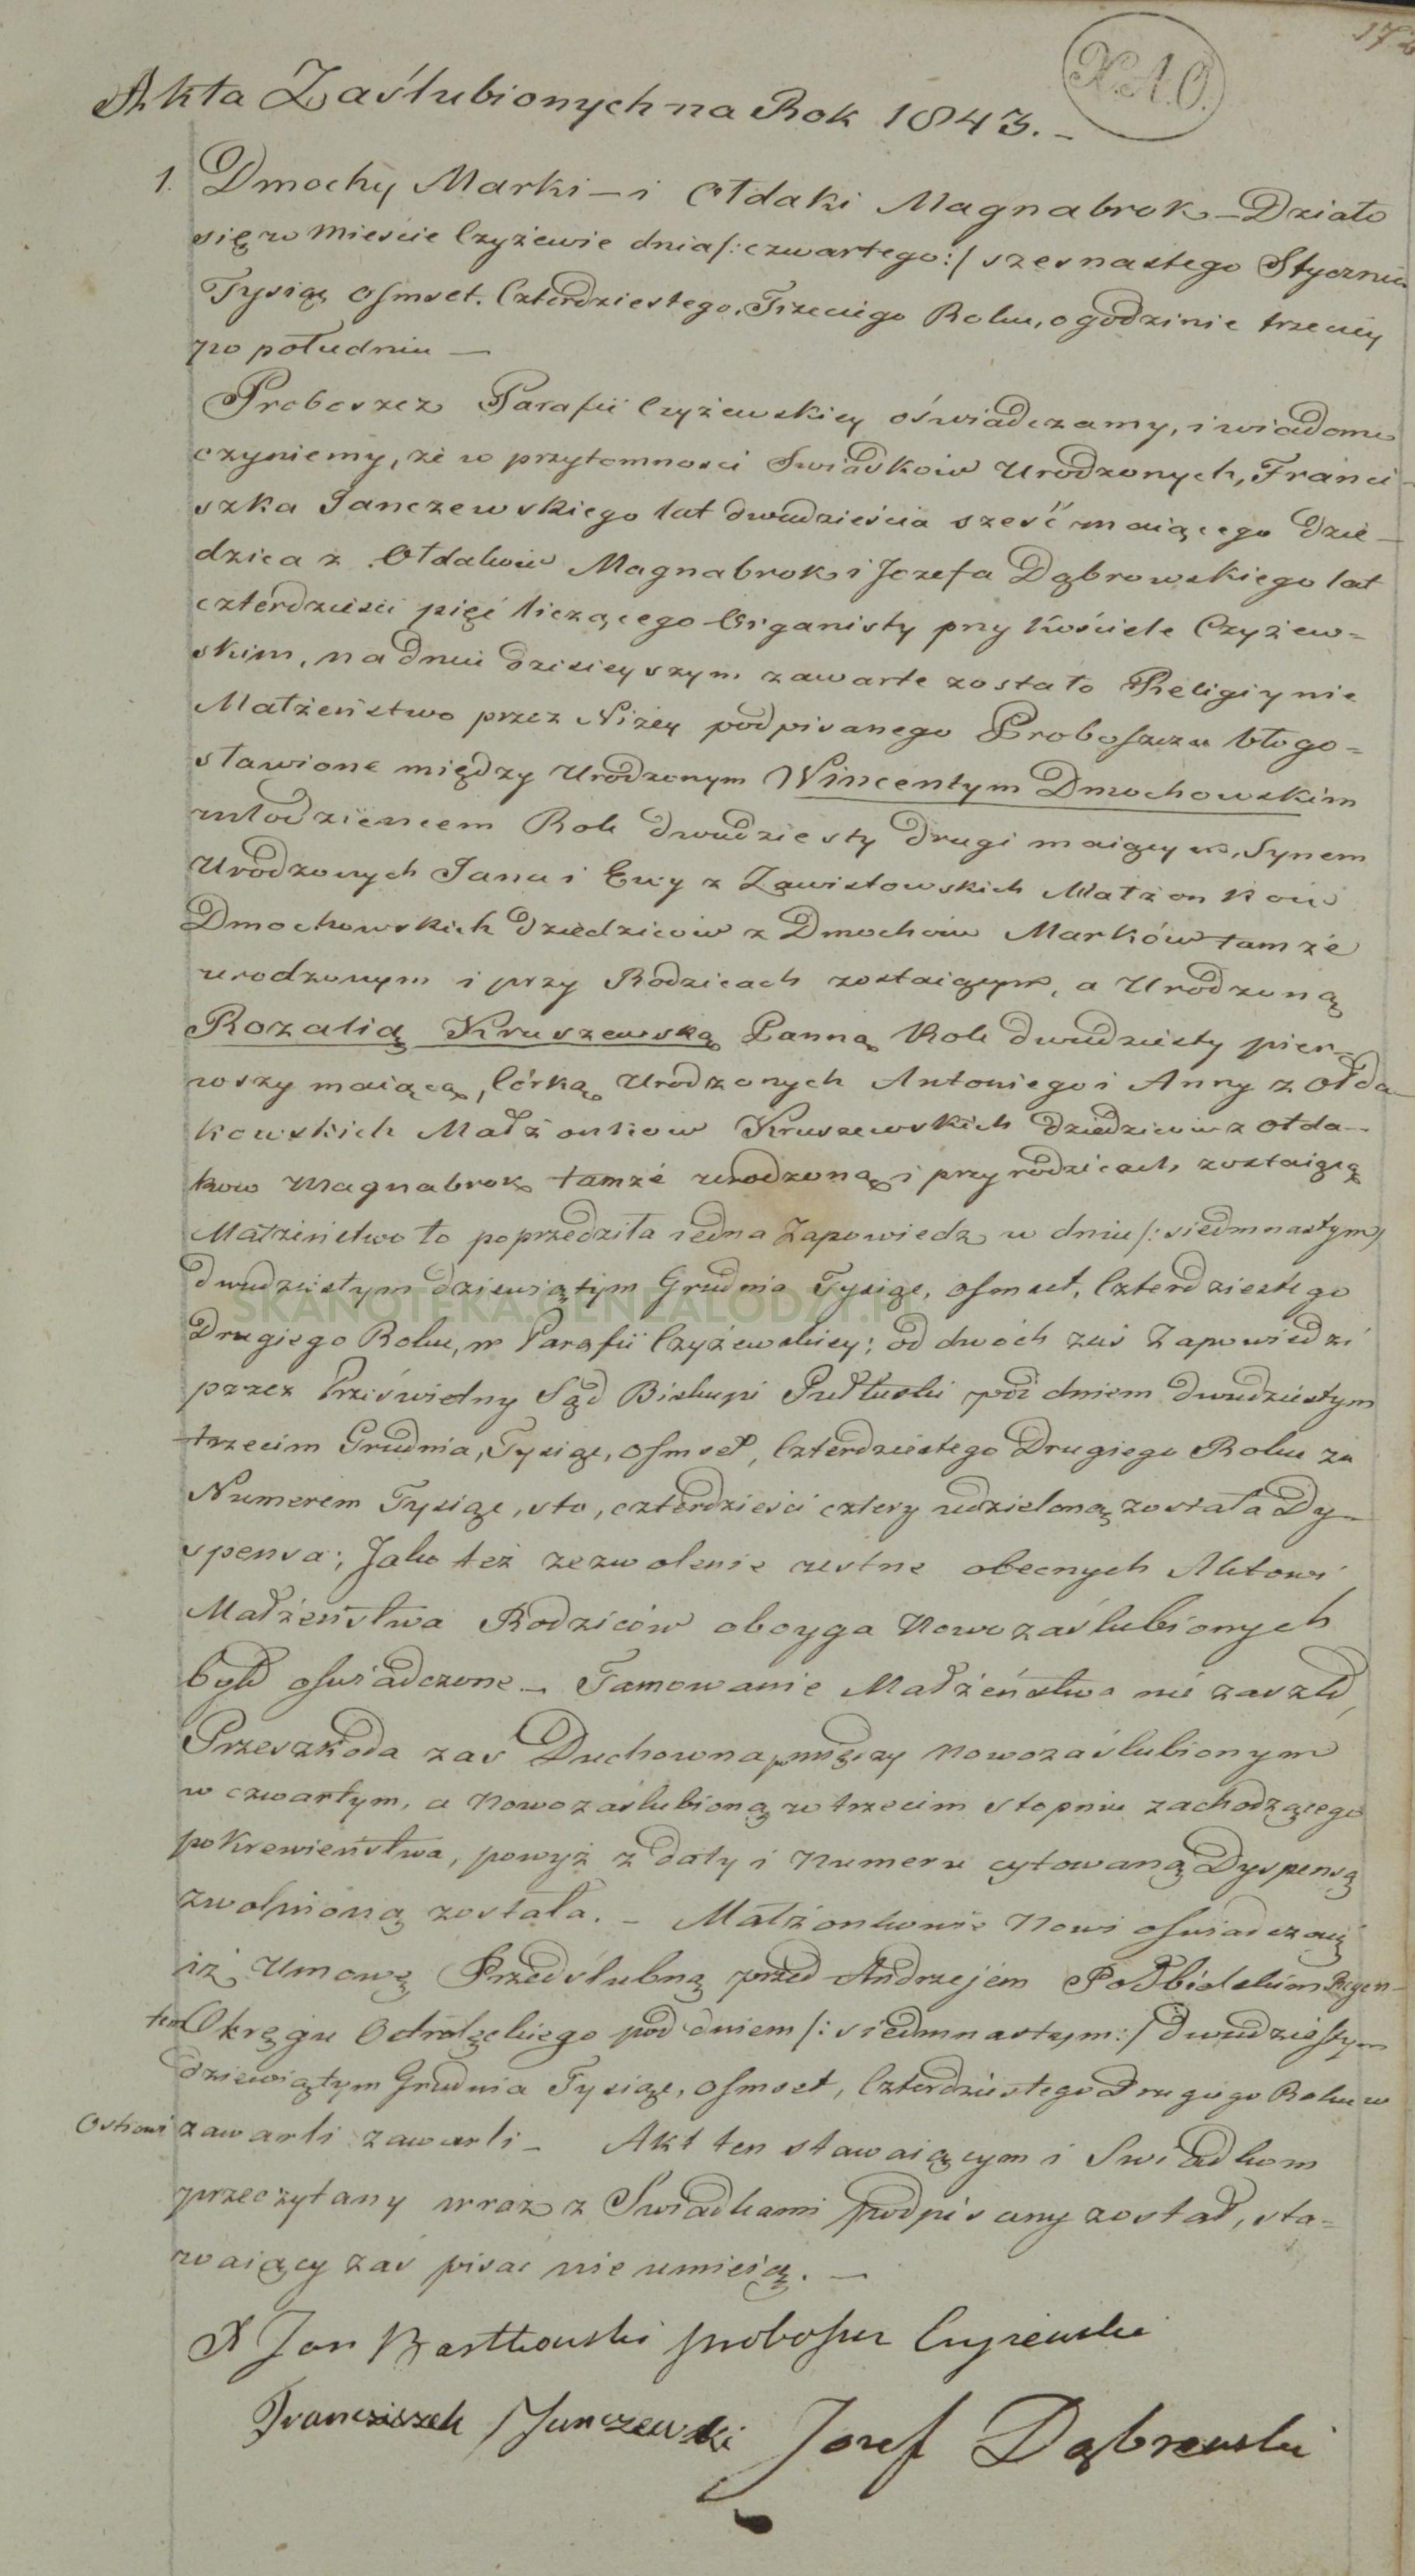 172
X.A.O.
Akta Zaślubionych na Rok 1843. –
1. Dmochy Marki – i Ołdaki Magnabrok – Działo
się w Mieście Czyżewie dnia /: czwartego :/ szesnastego Stycznia
Tysiąc Osmset. Czterdziestego, Trzeciego Roku, o godzinie trzeciey
po południu —
Proboszcz Parafii Czyżewskiey oświadczamy, i wiadomo
czyniemy, że w przytomnosci Swiadków Urodzonych, Franci-
szka Janczewskiego lat dwadzieścia sześć maiącego Dzie-
dzica z Ołdaków Magnabrok i Jozefa Dąbrowskiego lat
czterdzieści pięć liczącego Organisty przy Kościele Czyżew=
skim, na dniu dzisieyszym zawarte zostało Religiynie
Małżeństwo przez Niżey podpisanego Proboszcza błogo=
sławione między Urodzonym Wincentym Dmochowskim
młodzieńcem Rok dwudziesty drugi maiącym, Synem
Urodzonych Jana i Ewy z Zawistowskich Małżonków
Dmochowskich dziedziców z Dmochów Marków tamże
urodzonym i przy Rodzicach zostaiącym, a Urodzoną
Rozalią Kruszewską Panną Rok dwudziesty pier-
wszy maiącą, Córką Urodzonych Antoniego i Anny z Ołda-
kowskich Małżonkow Kruszewskich dziedziców z Ołda-
kow Magnabrok tamże urodzoną i przy rodzicach zostaiącą
Małżeństwo to poprzedziła iedna Zapowiedz w dniu /: siedmnastym /
dwudziestym dziewiątym Grudnia Tysiąc, Osmset, Czterdziestego
SKANOTEKA.GENEALODZY.PL
Drugiego Roku, w Parafii Czyżewskiey; od dwóch zaś Zapowiedzi
przez Prześwietny Sąd Biskupi Pułtuski pod dniem dwudziestym
trzecim Grudnia, Tysiąc, Osmset, Czterdziestego Drugiego Roku za
Numerem Tysiąc, sto, czterdzieści cztery udzieloną została Dy-
spensa; Jako też zezwolenie ustne obecnych Aktowi
Małżeństwa Rodziców oboyga Nowozaślubionych
było oswiadczone – Tamowanie Małżeństwa nie zaszło,
Przeszkoda zaś Duchowna, między Nowozaślubionym
w czwartym, a Nowozaślubioną w trzecim stopniu zachodzącego
pokrewieństwa, powyż z daty i Numeru cytowaną Dyspensą
zwolnioną została. – Małżonkowie Nowi oswiadczaią
iż Umowę Przedślubną przed Andrzejem Podbielskim Regen-
tem Okręgu Ostrołęckiego pod dniem /: siedmnastym :/ dwudziestym
dziewiątym Grudnia Tysiąc, Osmset, Czterdziestego Drugiego Roku w
Ostrowi zawarli zawarli – Akt ten stawaiącym i Swiadkom
przeczytany wraz z Swiadkami podpisany został, sta=
waiący zaś pisac nie umieią. —
X Jan Bartkowski proboszcz Czyżewski
Franciszek Janczewski Jozef Dąbrowski